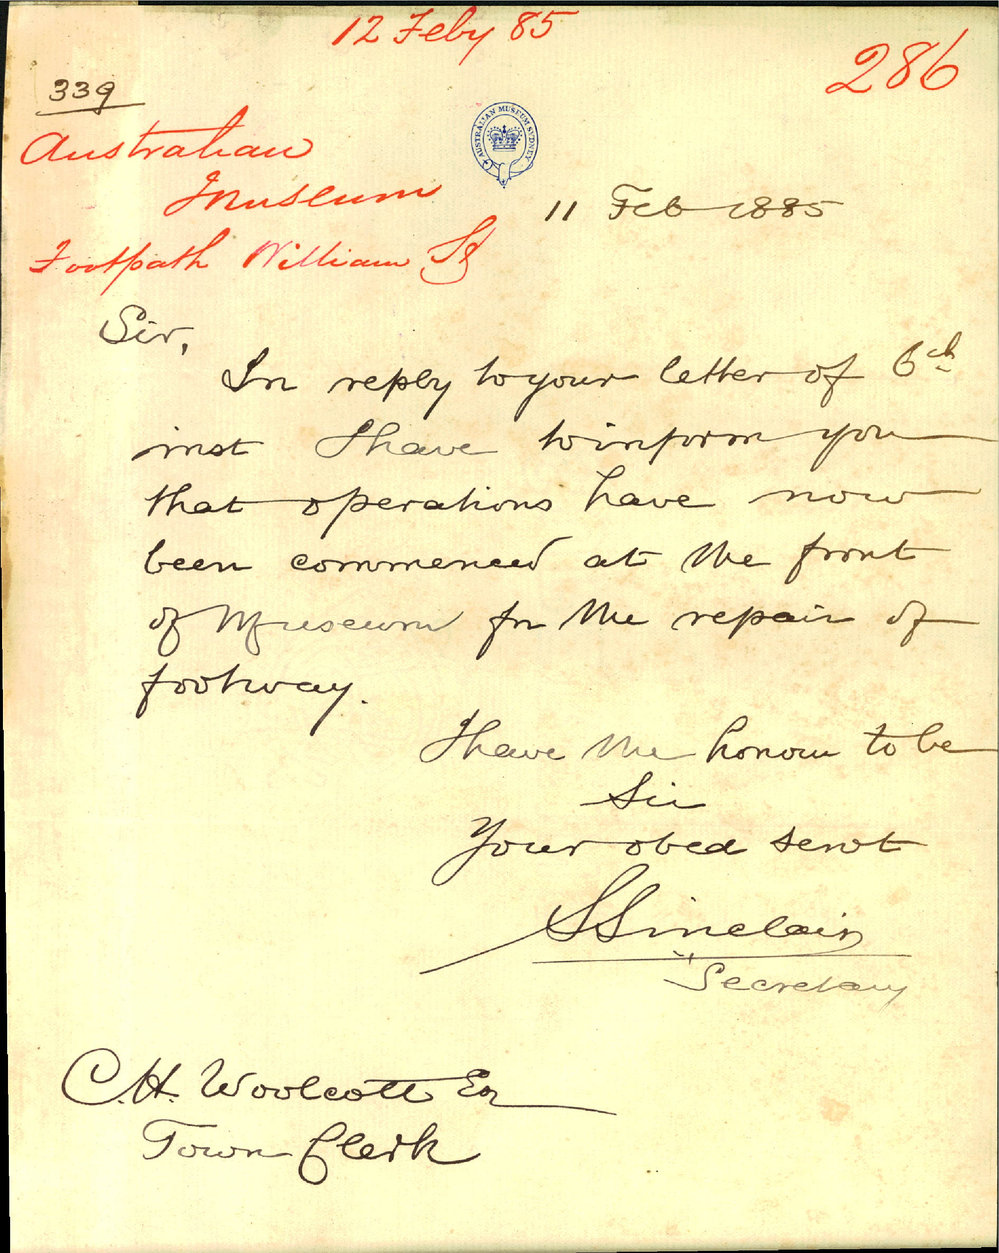 12 Feby 85
286
339
Australian
Museum
Footpath William St
AUSTRALIAN MUSEUM SYDNEY
11 Feb 1885
Sir,
In reply to your letter of 6th
inst I have to inform you
that operations have now
been commenced at the front
of Museum for the repair of
footway.
I have the honour to be
Sir
Your obed servt
S Sinclair
Secretary
C. H. Woolcott Esq
Town Clerk